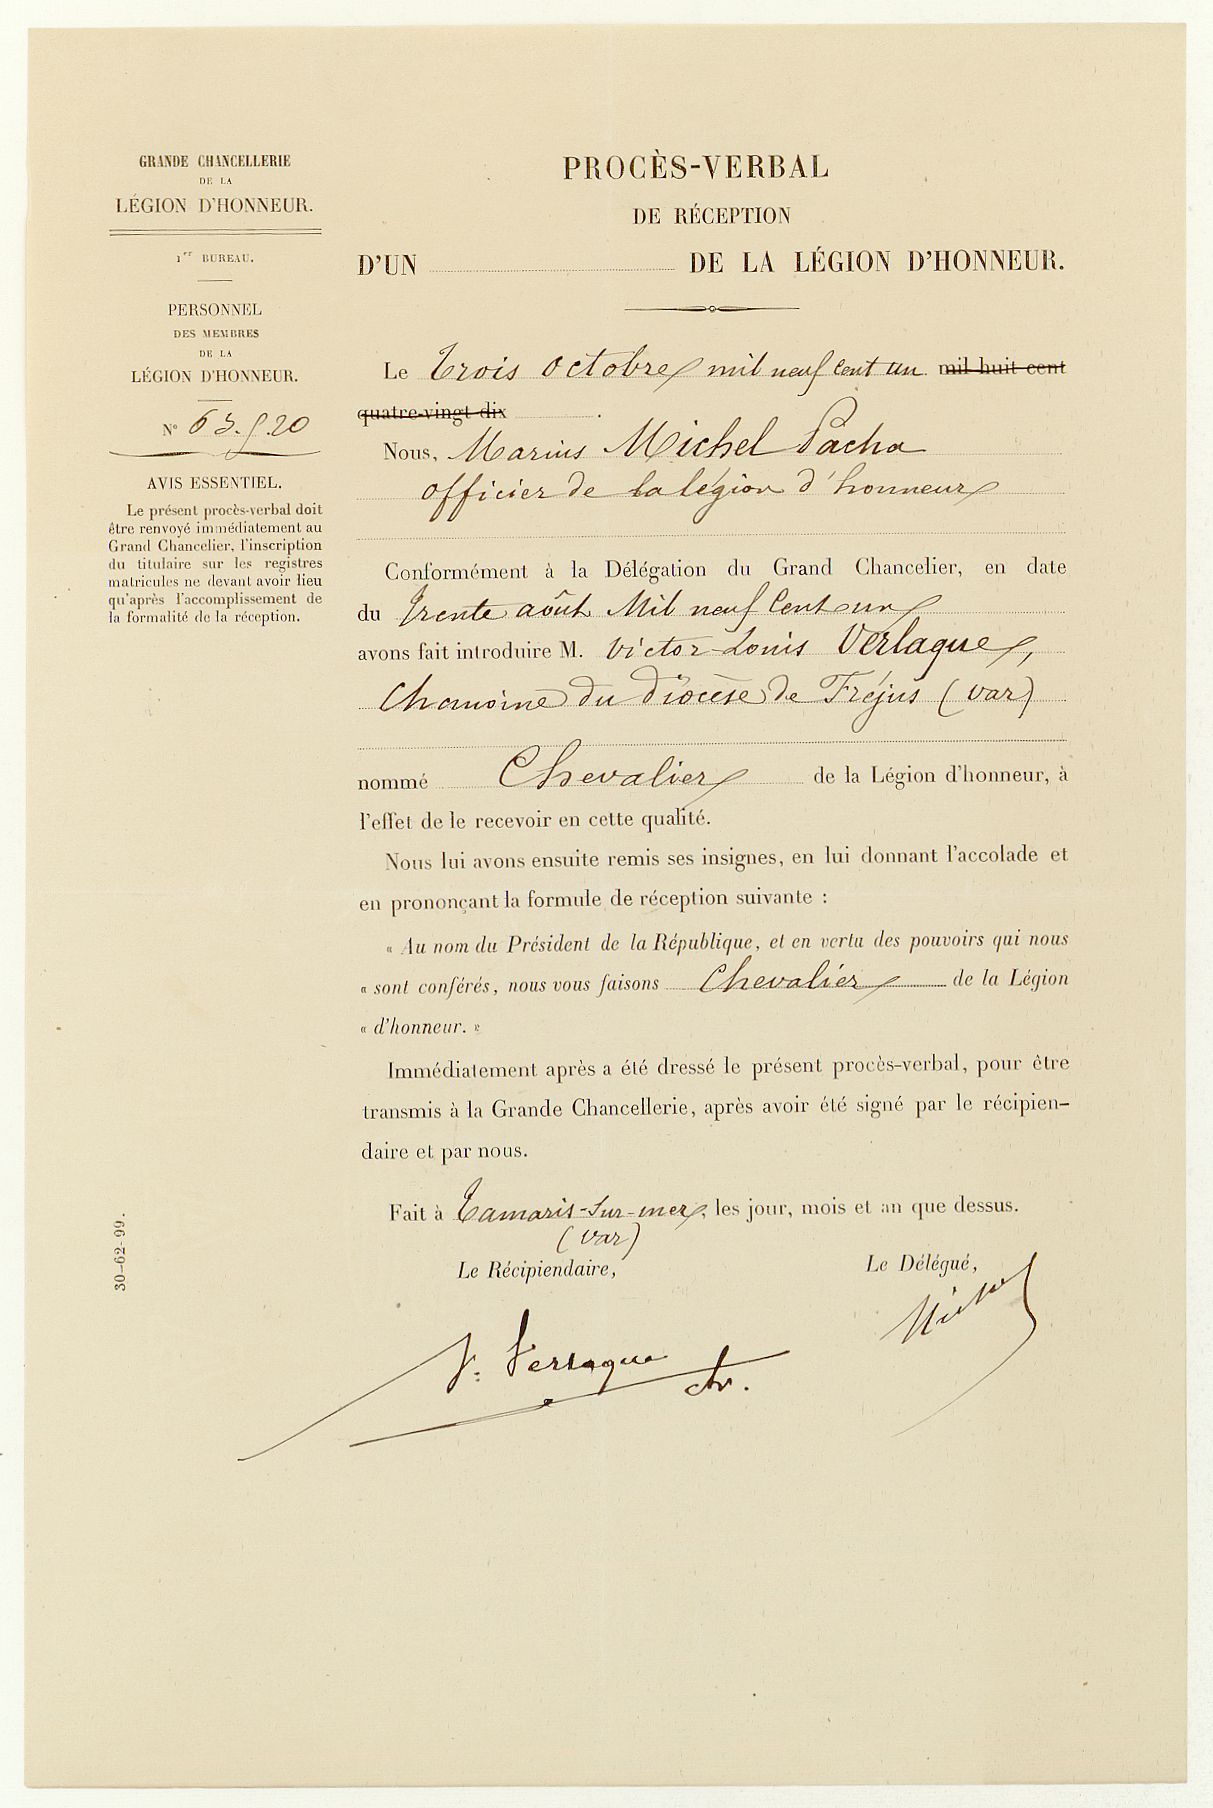 GRANDE CHANCELLERIE
DE LA
LÉGION D'HONNEUR.
1er BUREAU.
PERSONNEL
DES MEMBRES
DE LA
LÉGION D'HONNEUR.
N°
AVIS ESSENTIEL.
Le présent procès-verbal doit
être renvoyé immédiatement au
Grand Chancelier, l'inscription
du titulaire sur les registres
matricules ne devant avoir lieu
qu'après l'accomplissement de
la formalité de la réception.
30-62-99.
PROCÈS-VERBAL
DE RÉCEPTION
D'UN DE LA LÉGION D'HONNEUR.
Le trois octobre mil neuf cent un mil huit cent
quatre-vingt-dix
Nous, Marius Michel Pacha
officier de la légion d'honneur
Conformément à la Délégation du Grand Chancelier, en date
du Trente août Mil neuf Cent un
avons fait introduire M. Victor-Louis Verlaque,
Chanoine du diocèse de Fréjus (Var)
nommé Chevalier de la Légion d'honneur, à
l'effet de le recevoir en cette qualité.
Nous lui avons ensuite remis ses insignes, en lui donnant l'accolade et
en prononçant la formule de réception suivante :
« Au nom du Président de la République, et en vertu des pouvoirs qui nous
« sont conférés, nous vous faisons Chevalier de la Légion
« d'honneur. »
Immédiatement après a été dressé le présent procès-verbal, pour être
transmis à la Grande Chancellerie, après avoir été signé par le récipien-
daire et par nous.
Fait à Tamaris-sur-mer, les jour, mois et an que dessus.
(Var)
Le Récipiendaire,
Le Délégué,
V. Verlaque
Michel